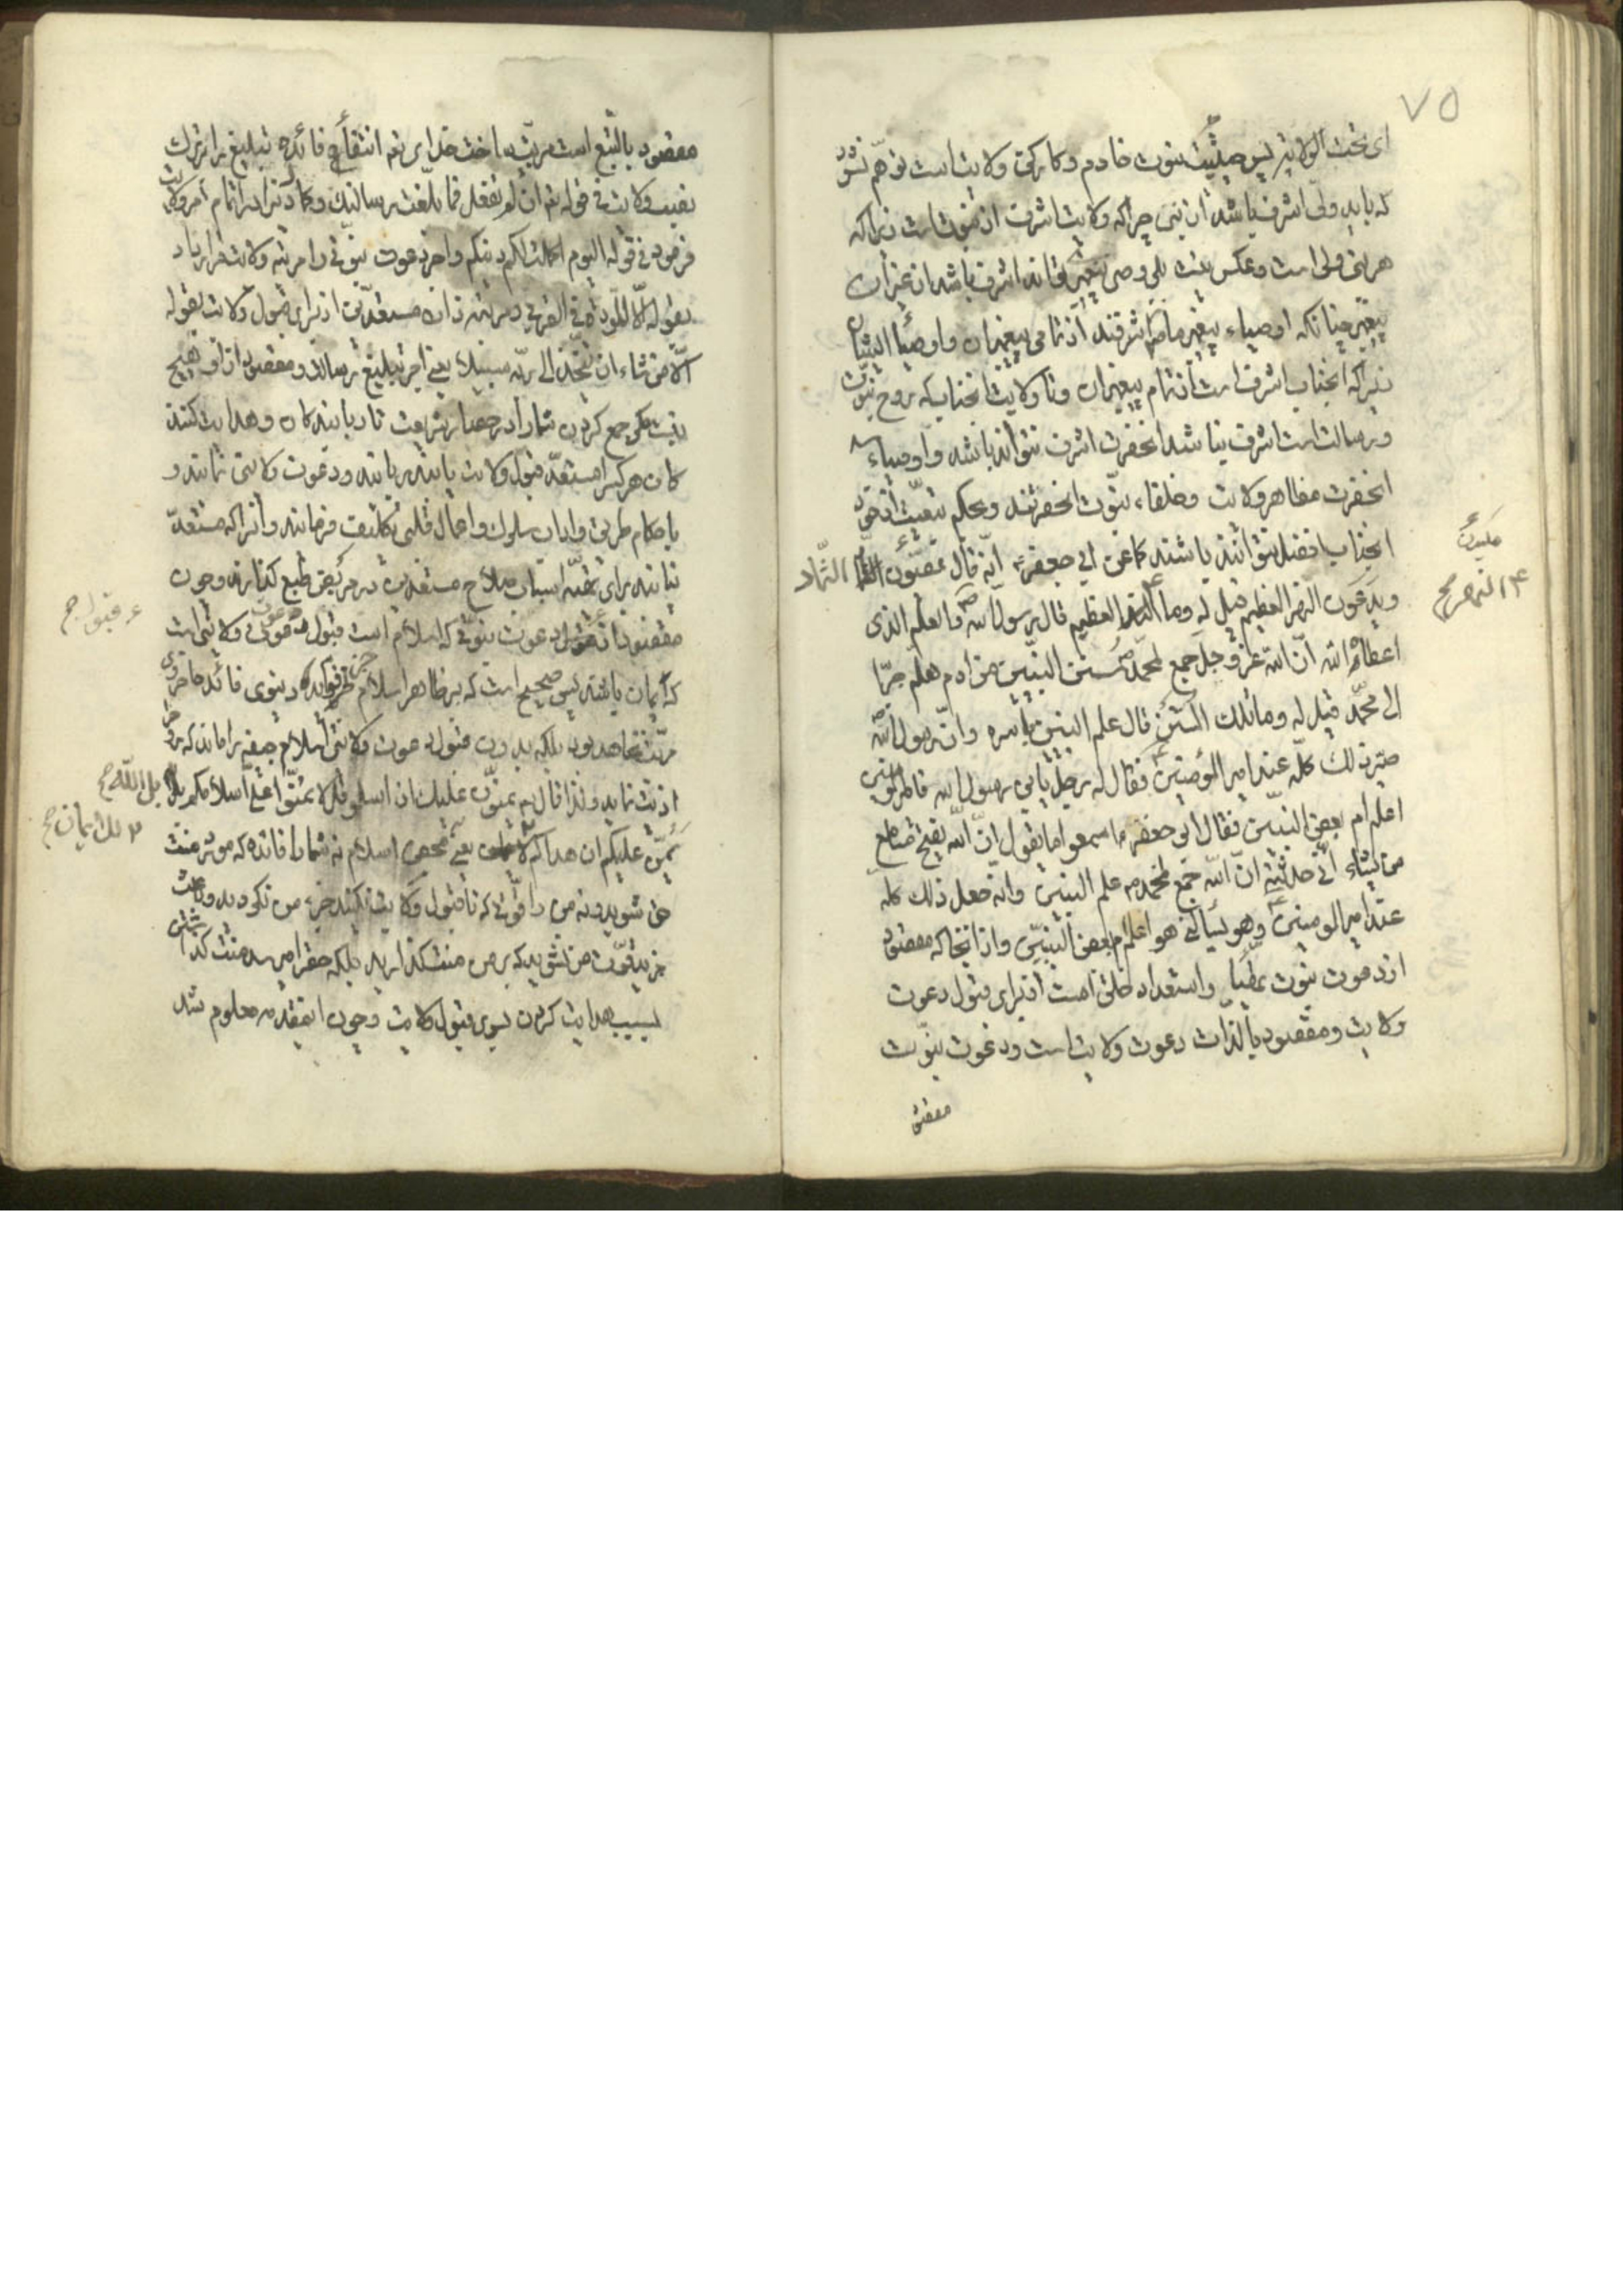 ۷۵
ای تحت الولایة پس حیثیت نبوت خادم و کارکن ولایت است توهم نشود
که باید ولی اشرف باشد از نبی چرا که ولایت اشرف از نبوت است زیرا که
هر نبی ولی است و عکس نیست بلی وصی پیغمبر تواند اشرف باشد از غیر آن
پیغمبر چنانکه اوصیاء پیغمبر ما ص اشرفند از تمامی پیغمبران و اوصیاء ایشان
زیرا که آنجناب اشرف است از تمام پیغمبران و تا ولایت آنجناب که روح نبوت
و رسالت است اشرف نباشد آنحضرت اشرف نتواند باشد و اوصیاء
آنحضرت مظاهر ولایت و خلفاء نبوت آنحضرتند و بحکم تبعیت از
آنجناب افضل توانند باشند کما عن ابی جعفر ع انه قال یمصّون الثماد
و یدعون النهر العظیم قیل له و ما النهر العظیم قال رسول الله ص و العلم الذی
اعطاه الله ان الله عز و جل جمع لمحمد ص سنن النبیین من ادم هلم جرّا
الی محمد قیل له و ما تلک السنن قال علم النبیین باسره و ان رسول الله ص
صیّر ذلک کله عند امیر المؤمنین ع فقال له رجل یابن رسول الله فامیر المؤمنین
اعلم ام بعض النبیین فقال ابی جعفر ع اسمعوا ما یقول ان الله یفتح مسامع
من یشاء انی حدثته ان الله جمع لمحمد ص علم النبیین و انه جعل ذلک کله
عند امیر المومنین ع و هو یسألنی هو اعلم ام بعض النبیین و از اینجا که مقصود
از دعوت نبوت و استعداد خلق است از برای قبول دعوت
ولایت و مقصود بالذات دعوت ولایت است و دعوت نبوت
مقصود
النهر صح
مقصود بالتبع است مرتب ساخت خدای تعالی انتفاء فائده تبلیغ را بر ترک
نصب ولایت فی قوله تعالی ان لم تفعل فما بلغت رسالتک و اکمال دین را در اتمام امر ولایت
فرمود فی قوله الیوم اکملت لکم دینکم و اجر دعوت نبوتی را مرتبه ولایت قرار داد
بقوله الا المودة فی القربی در مرتبه دان مستعدین از برای قبول ولایت بقوله
الا من شاء ان یتخذ الی ربه سبیلا یعنی اجر تبلیغ رسالت و مقصود از او هیچ
نیست مگر جمع کردن شما را در حصار شریعت تا دربانیدکان و هدایت کنند
کان هر کس را مستعد قبول ولایت یابند بربایند و دعوت ولایتی نمایند و
باحکام طریق و اداب سلوک و اعمال قلبی تکلیف فرمایند و آنرا که مستعد
نیابند برای تهیه اسباب صلاح مستعدین در مرتع طبع گذارند و چون
مقصود از دعوت نبوتی که اسلام است قبول دعوت ولایتی است
که ایمان باشد پس صحیح است که بر ظاهر اسلام جز فواید دنیوی فائده اخروی
مرتب نخواهد بود بلکه بدون قبول دعوت ولایتی اسلام جیفه را ماند که
اذیت نماید و لذا قال تعالی یمنون علیک ان اسلموا قل لا تمنوا علی اسلامکم بل الله
یمنّ علیکم ان هداکم للایمان یعنی محض اسلام نه شما را فائده که مورث منت
من شوید و نه من را قوتی که تا قبول ولایت نکنید جزء من نگردید و باعث
مزید قوت من نشوید که بر من منت گذارید بلکه حق را میرسد منت گذاشتن
بسبب هدایت کردن بسوی قبول ولایت و چون اینقدر معلوم شد
قبول صح
بل الله صح
للایمان صح